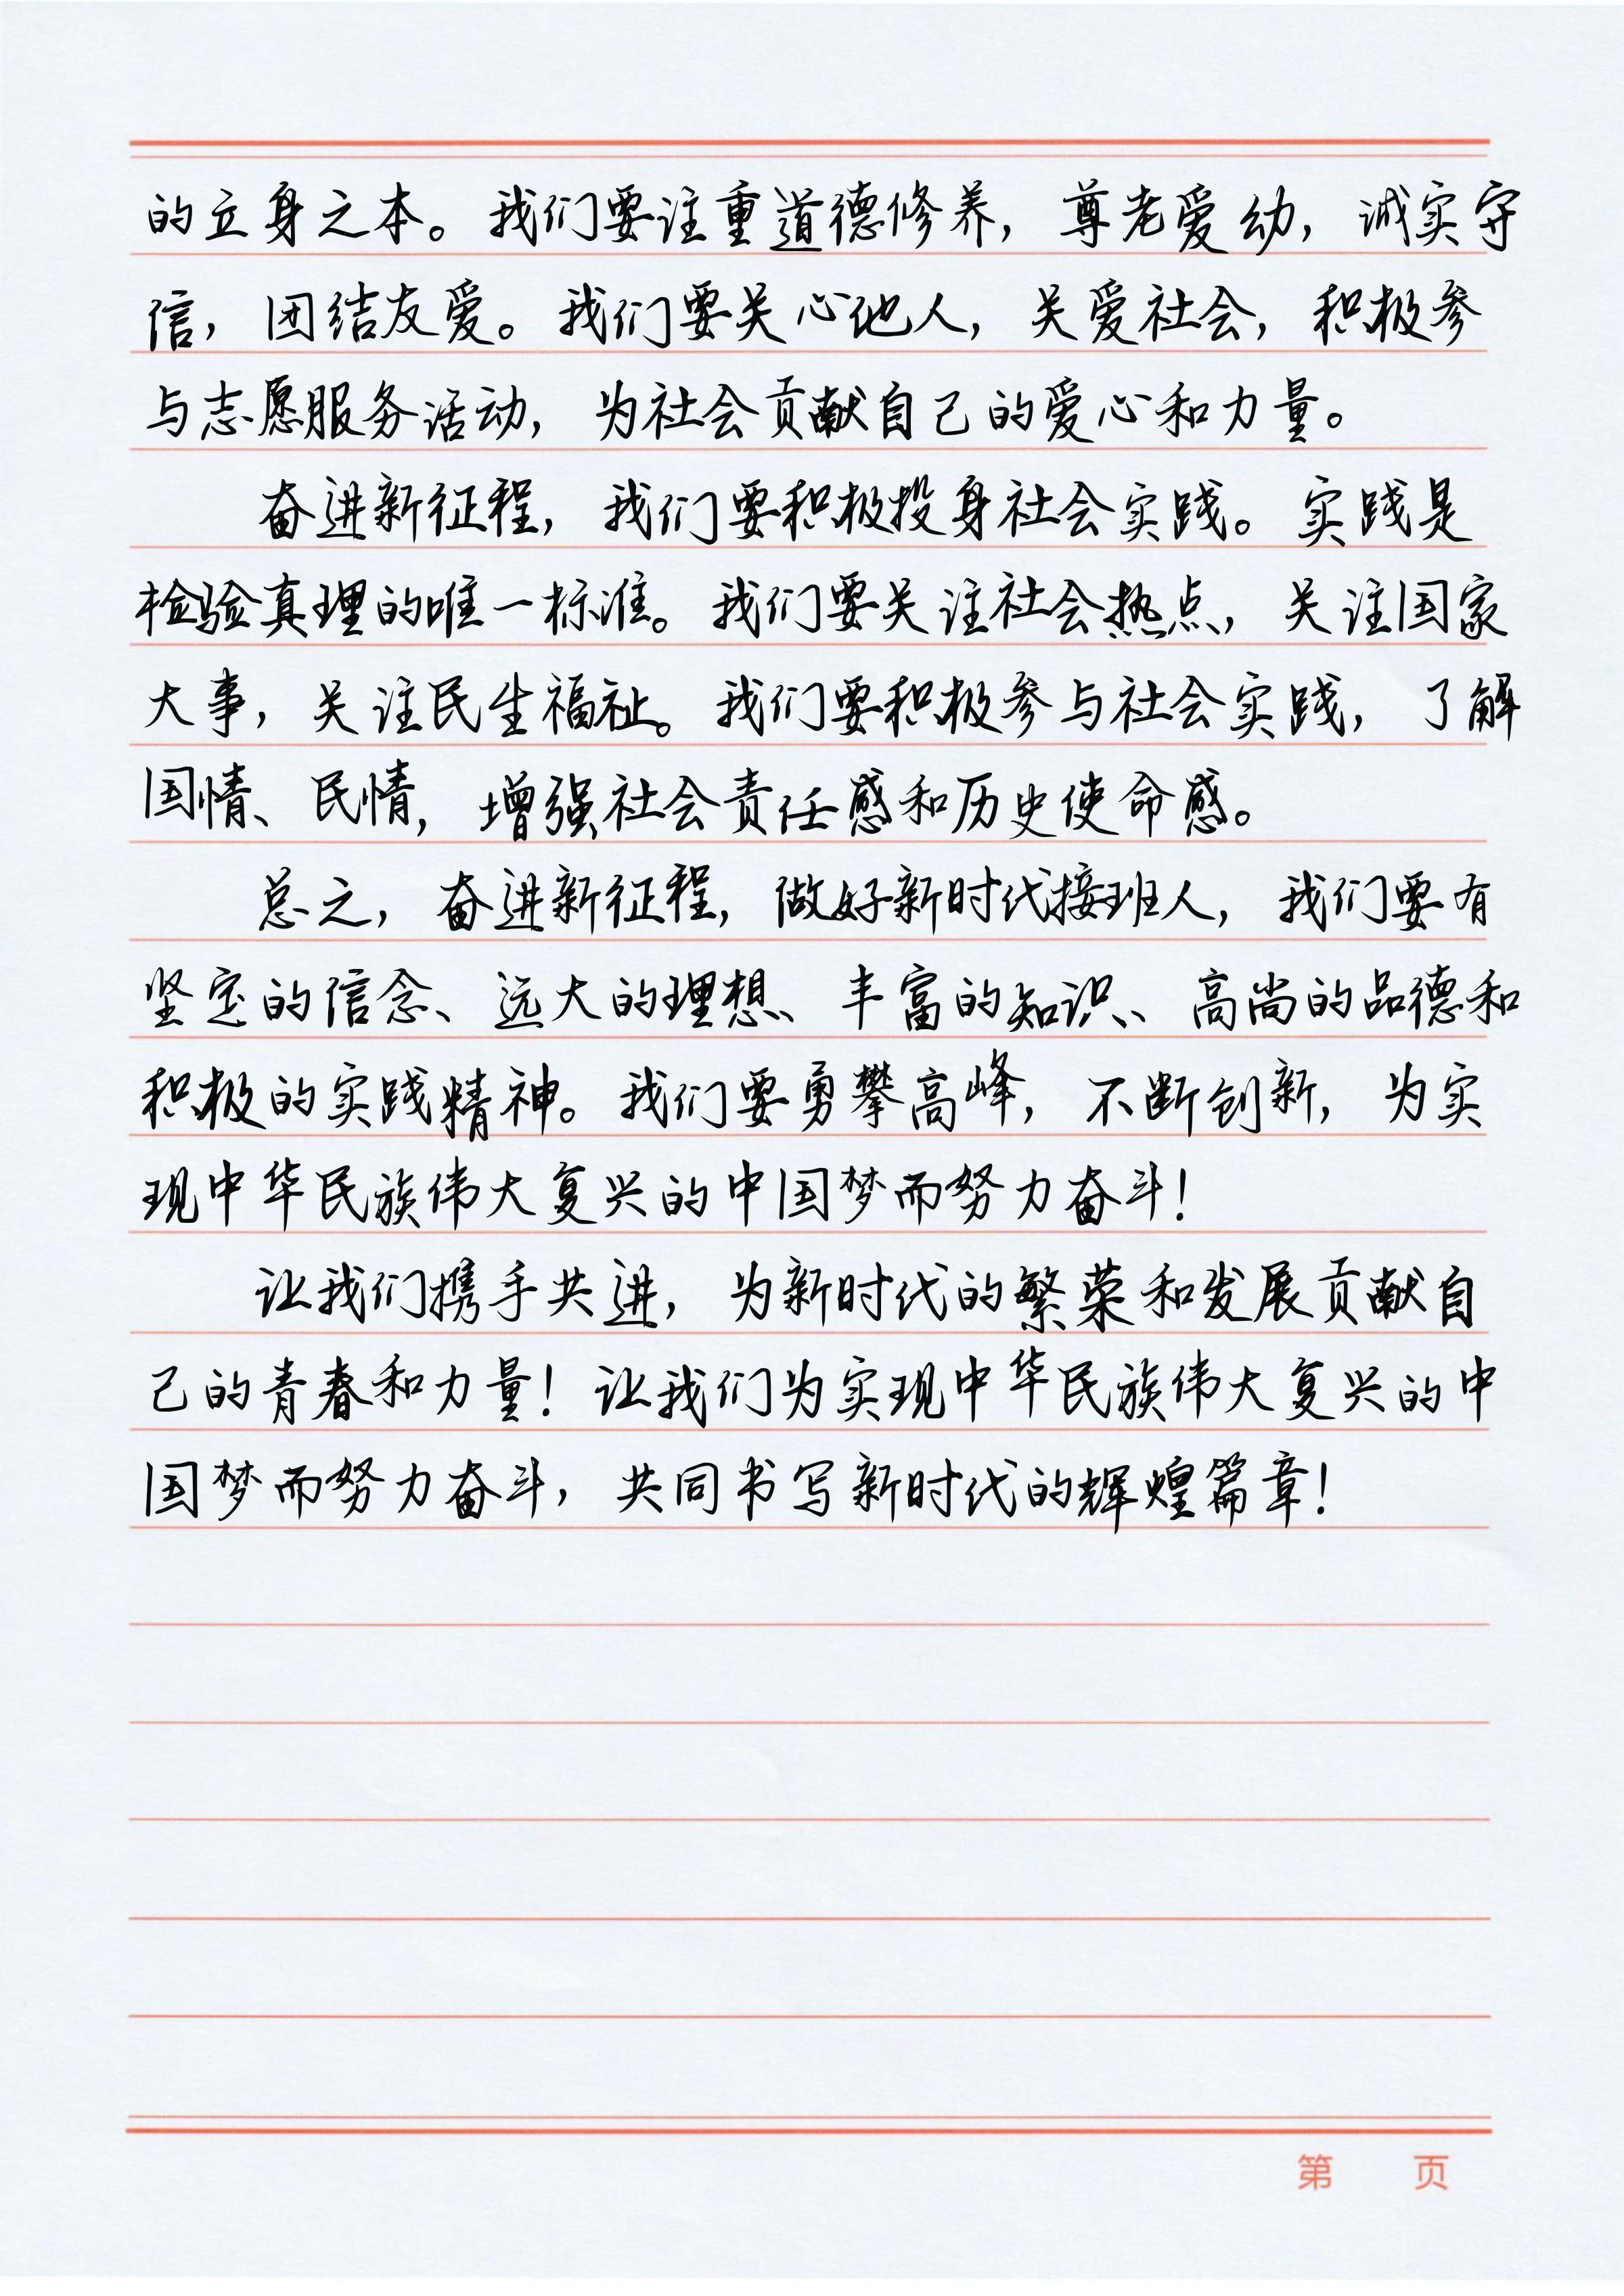 的立身之本。我们要注重道德修养，尊老爱幼，诚实守
信，团结友爱。我们要关心他人，关爱社会，积极参
与志愿服务活动，为社会贡献自己的爱心和力量。
奋进新征程，我们要积极投身社会实践。实践是
检验真理的唯一标准。我们要关注社会热点，关注国家
大事，关注民生福祉。我们要积极参与社会实践，了解
国情、民情，增强社会责任感和历史使命感。
总之，奋进新征程，做好新时代接班人，我们要有
坚定的信念、远大的理想、丰富的知识、高尚的品德和
积极的实践精神。我们要勇攀高峰，不断创新，为实
现中华民族伟大复兴的中国梦而努力奋斗！
让我们携手共进，为新时代的繁荣和发展贡献自
己的青春和力量！让我们为实现中华民族伟大复兴的中
国梦而努力奋斗，共同书写新时代的辉煌篇章！
第 页